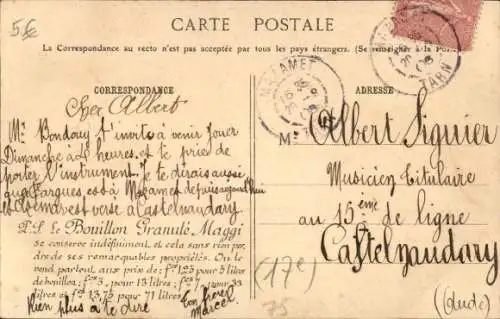 5€
CARTE POSTALE
La Correspondance au recto n'est pas acceptée par tous les pays étrangers. (Se renseigner à la Poste)
MAZAMET
TARN
CORRESPONDANCE
Cher Albert
Mr Bondouy t'invite à venir jouer
Dimanche à 8 heures et te prie de
porter l'instrument. Je te dirais aussi
que Fargues est à Mazamet depuis aujourd'hui
et verse à Castelnaudary
P.S. Le Bouillon Granulé Maggi
se conserve indéfiniment et cela sans rien per-
dre de ses remarquables propriétés. On le
vend partout aux prix de: frs 1,25 pour 5 litres
de bouillon; frs 3, pour 13 litres; frs 7, pour 33
litres frs 13,75 pour 71 litres. Ton frère
Marcel
Rien plus à te dire
ADRESSE
Mr Albert Siguier
Musicien titulaire
au 15eme de ligne
Castelnaudary
(17e)
(Aude)
75